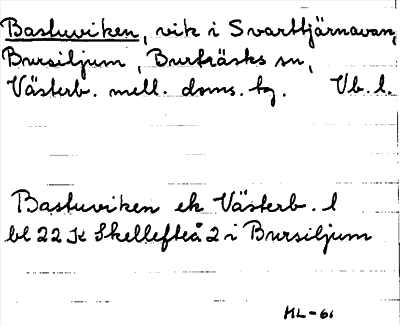 Bastuviken, vik i Svarttjärnavan,
Bursiljum, Burträsks sn,
Västerb. mell. doms. tg. Vb. l.
Bastuviken ek Västerb. l
bl 22 K Skellefteå 2 i Bursiljum
HL-61